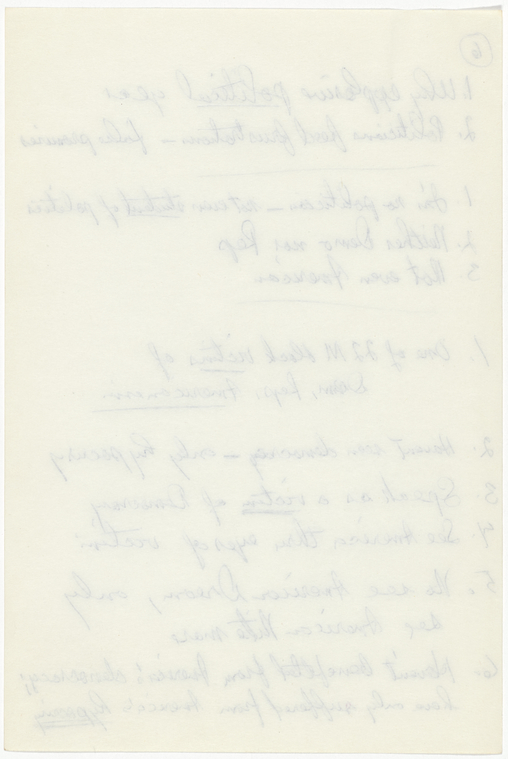 6
1. Why explosive political year
2. Politicians feed frustration — false promises
1. I'm no politician — not even student of politics
2. Neither Demo nor Rep
3. Not even American
1. One of 22 M black victims of
Dem, Rep, Americanism
2. Havent seen democracy — only hypocrisy
3. Speak as a victim of
4. See America thru eyes of victim:
5. No see American Dream, only
see American Nite mare
6. Havn't benefited from America's democracy;
have only suffered from America's hypocrisy